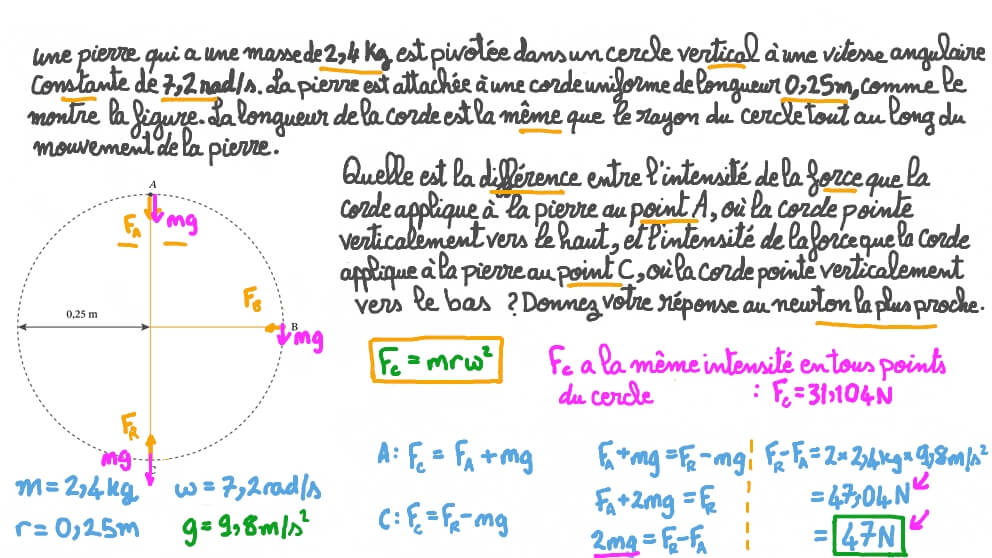 une pierre qui a une masse de 2,4 Kg est pivotée dans un cercle vertical à une vitesse angulaire
Constante de 7,2 rad/s. La pierre est attachée à une corde uniforme de longueur 0,25m, comme le
montre la figure. La longueur de la corde est la même que le rayon du cercle tout au long du
mouvement de la pierre.
Quelle est la différence entre l'intensité de la force que la
corde applique à la pierre au point A, où la corde pointe
verticalement vers le haut, et l'intensité de la force que la corde
applique à la pierre au point C, où la corde pointe verticalement
vers le bas ? Donnez votre réponse au newton la plus proche.
A
F_A mg
F_B
0,25 m
B
mg
F_R
mg
m = 2,4 kg ω = 7,2 rad/s
r = 0,25m g = 9,8 m/s²
F_c = mrω²
F_c a la même intensité en tous points
du cercle : F_c = 31,104 N
A: F_c = F_A + mg
C: F_c = F_R - mg
F_A + mg = F_R - mg
F_A + 2mg = F_R
2mg = F_R - F_A
F_R - F_A = 2 × 2,4 kg × 9,8 m/s²
= 47,04 N
= 47 N